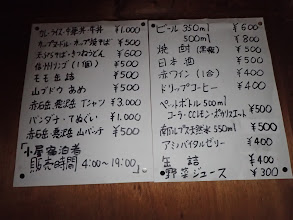 カレーライス・中華丼・牛丼 ¥1,000
カップヌードル・カップ焼そば ¥500
天ぷらそば・きつねうどん ¥600
信州リンゴ(1個) ¥500
モモ缶詰 ¥500
山ブドウあめ ¥500
赤石岳・悪沢岳 Tシャツ ¥3,000
バンダナ・てぬぐい ¥1,000
赤石岳・悪沢岳 山バッチ ¥500
「小屋宿泊者
販売時間 4:00~19:00」
ビール 350ml ¥600
〃 500ml ¥800
焼酎 ¥500
日本酒 ¥500
赤ワイン(1合) ¥400
ドリップコーヒー ¥400
ペットボトル 500ml
コーラ・CCレモン・ポカリスエット ¥500
南アルプス天然水 550ml ¥500
アミノバイタルゼリー ¥400
缶詰 ¥400
野菜ジュース ¥300